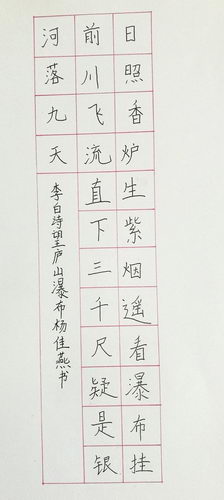 日照香炉生紫烟遥看瀑布挂
前川飞流直下三千尺疑是银
河落九天
李白诗望庐山瀑布杨佳燕书